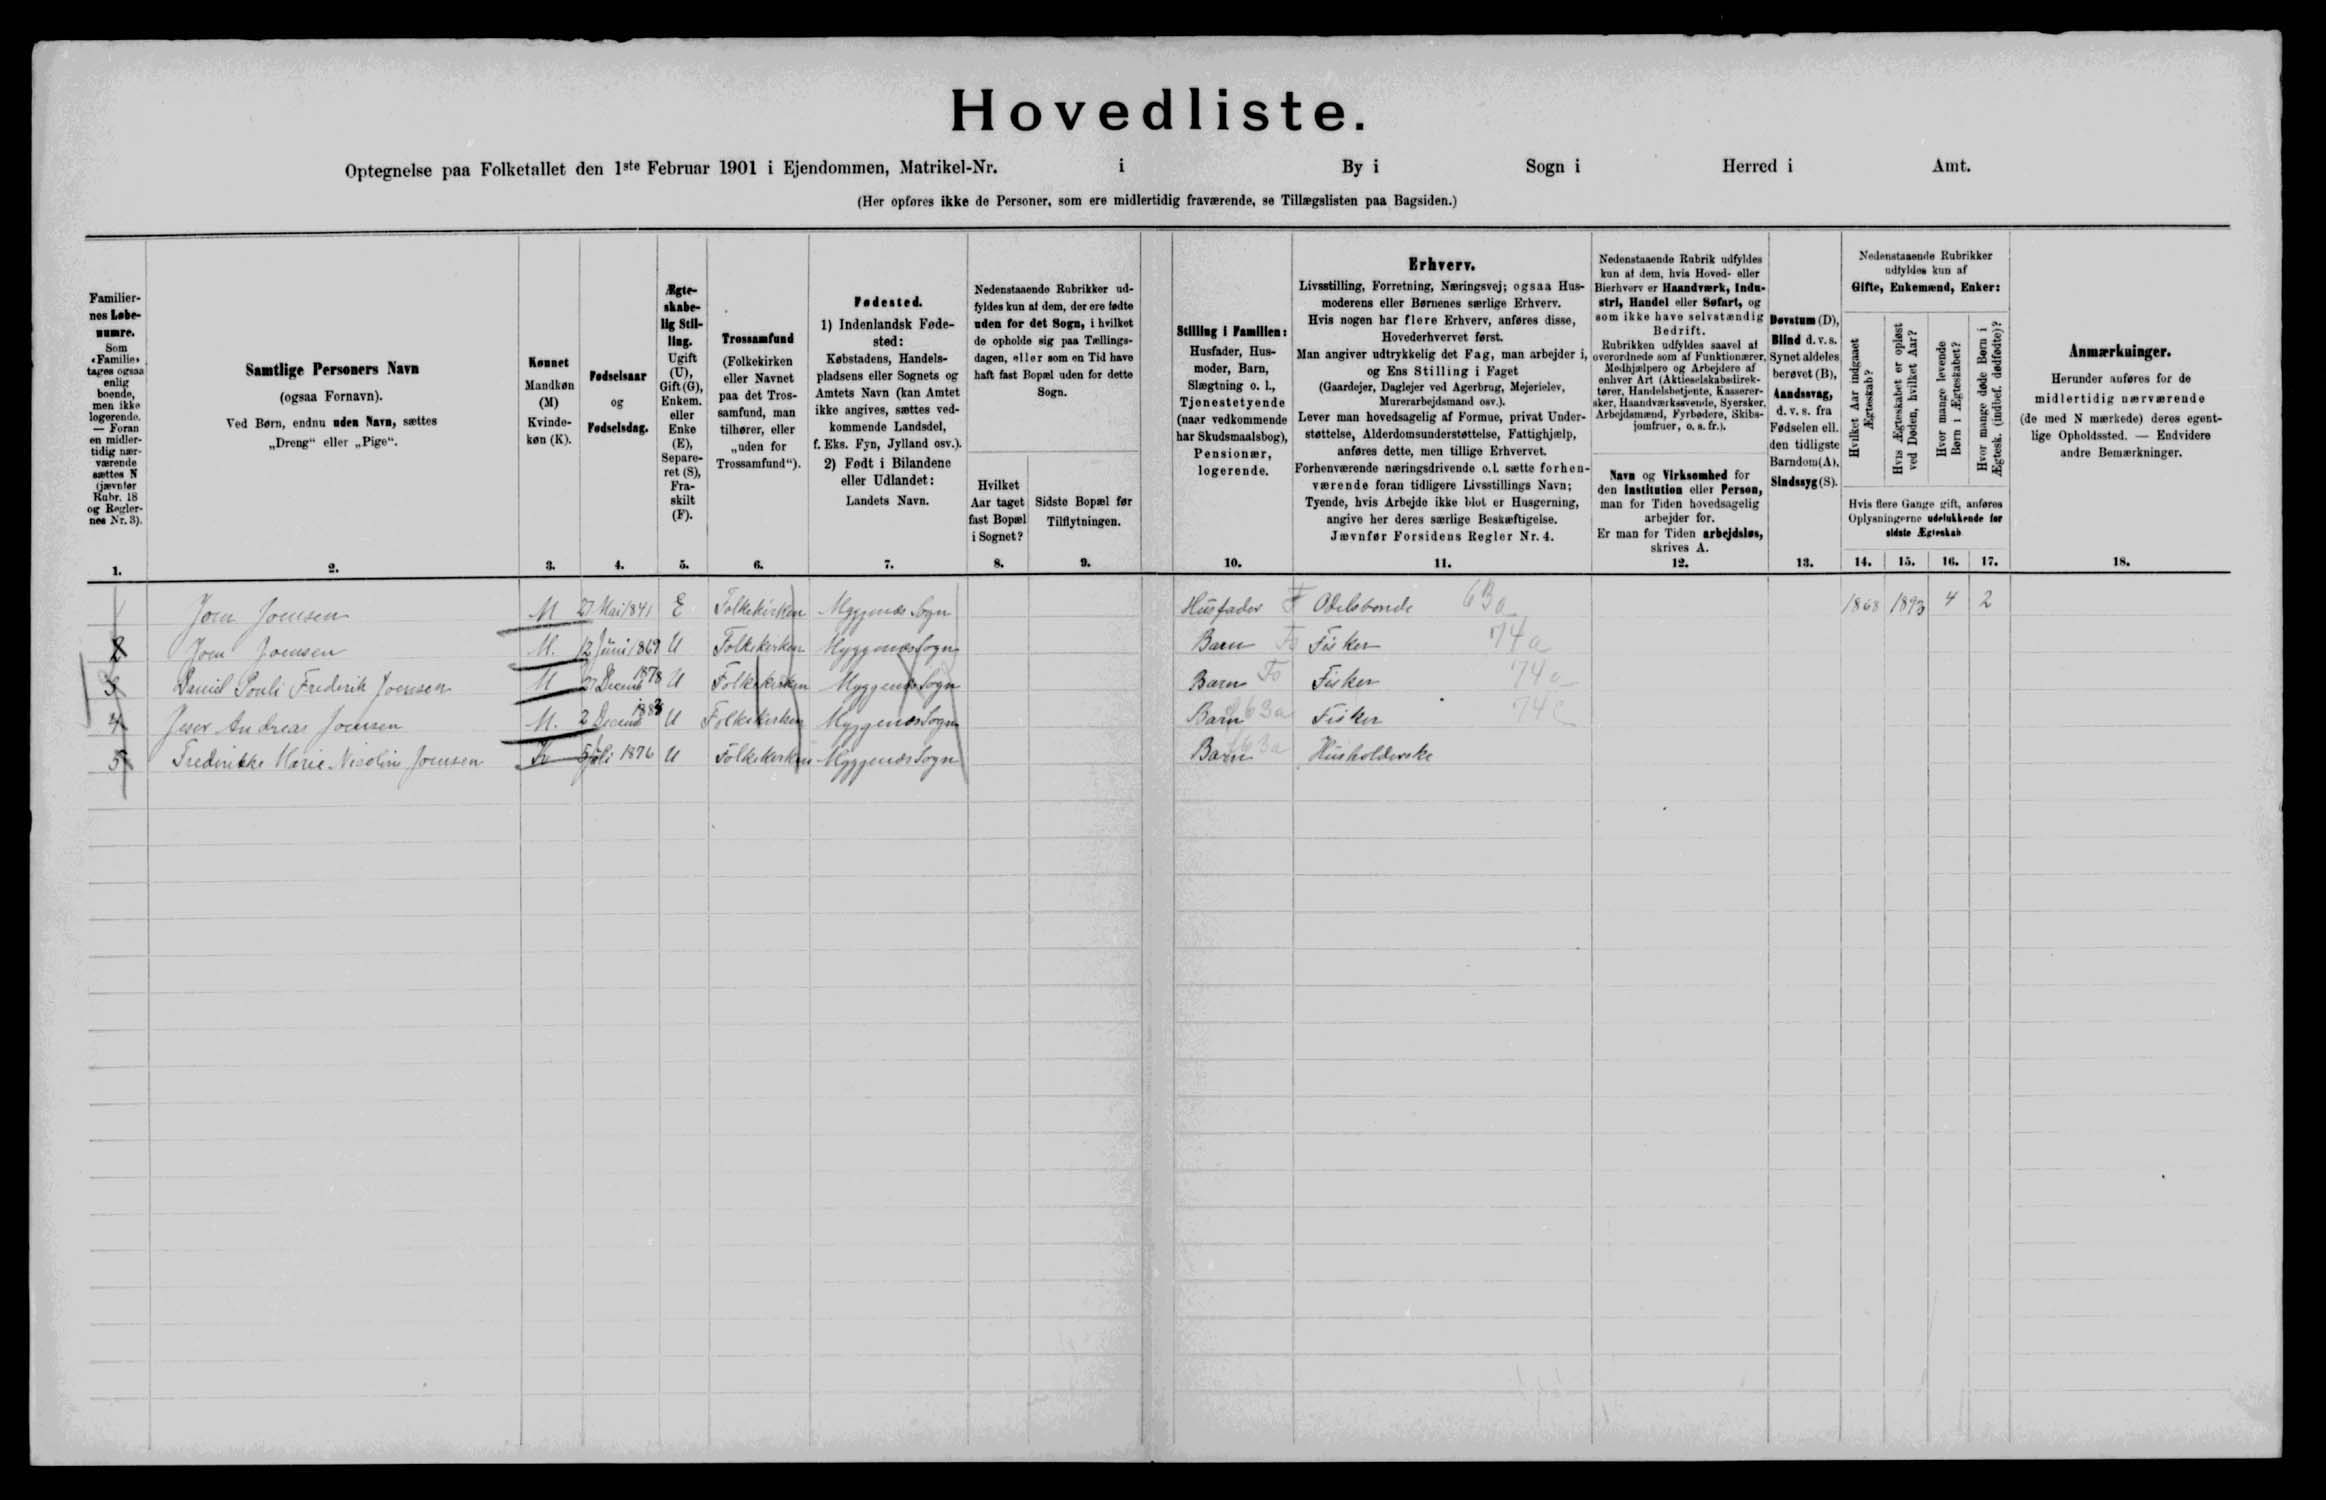 Hovedliste.
Optegnelse paa Folketallet den 1ste Februar 1901 i Ejendommen, Matrikel-Nr. i By i Sogn i Herred i Amt.
(Her opføres ikke de Personer, som ere midlertidig fraværende, se Tillægslisten paa Bagsiden.)
Familier-
nes Løbe-
numre.
Som
«Familie»
tages ogsaa
enlig
boende,
men ikke
logerende.
— Foran
en midler-
tidig nær-
værende
sættes N
(jævnfør
Rubr. 18
og Regler-
nes Nr. 3).
1.
Samtlige Personers Navn
(ogsaa Fornavn).
Ved Børn, endnu uden Navn, sættes
„Dreng“ eller „Pige“.
2.
Kønnet
Mandkøn
(M)
Kvinde-
køn (K).
3.
Fødselsaar
og
Fødselsdag.
4.
Ægte-
skabe-
lig Stil-
ling.
Ugift
(U),
Gift (G),
Enkem.
eller
Enke
(E),
Separe-
ret (S),
Fra-
skilt
(F).
5.
Trossamfund
(Folkekirken
eller Navnet
paa det Tros-
samfund, man
tilhører, eller
„uden for
Trossamfund“).
6.
Fødested.
1) Indenlandsk Føde-
sted:
Købstadens, Handels-
pladsens eller Sognets og
Amtets Navn (kan Amtet
ikke angives, sættes ved-
kommende Landsdel,
f. Eks. Fyn, Jylland osv.).
2) Født i Bilandene
eller Udlandet:
Landets Navn.
7.
Nedenstaaende Rubrikker ud-
fyldes kun af dem, der ere fødte
uden for det Sogn, i hvilket
de opholde sig paa Tællings-
dagen, eller som en Tid have
haft fast Bopæl uden for dette
Sogn.
Hvilket
Aar taget
fast Bopæl
i Sognet?
8.
Sidste Bopæl før
Tilflytningen.
9.
Stilling i Familien:
Husfader, Hus-
moder, Barn,
Slægtning o. l.,
Tjenestetyende
(naar vedkommende
har Skudsmaalsbog),
Pensionær,
logerende.
10.
Erhverv.
Livsstilling, Forretning, Næringsvej; ogsaa Hus-
moderens eller Børnenes særlige Erhverv.
Hvis nogen har flere Erhverv, anføres disse,
Hovederhvervet først.
Man angiver udtrykkelig det Fag, man arbejder i,
og Ens Stilling i Faget
(Gaardejer, Daglejer ved Agerbrug, Mejerielev,
Murerarbejdsmand osv.).
Lever man hovedsagelig af Formue, privat Under-
støttelse, Alderdomsunderstøttelse, Fattighjælp,
anføres dette, men tillige Erhvervet.
Forhenværende næringsdrivende o.l. sætte forhen-
værende foran tidligere Livsstillings Navn;
Tyende, hvis Arbejde ikke blot er Husgerning,
angive her deres særlige Beskæftigelse.
Jævnfør Forsidens Regler Nr. 4.
11.
Nedenstaaende Rubrik udfyldes
kun af dem, hvis Hoved- eller
Bierhverv er Haandværk, Indu-
stri, Handel eller Søfart, og
som ikke have selvstændig
Bedrift.
Rubrikken udfyldes saavel af
overordnede som af Funktionærer,
Medhjælpere og Arbejdere af
enhver Art (Aktieselskabsdirek-
tører, Handelsbetjente, Kasserer-
sker, Haandværkssvende, Syersker,
Arbejdsmænd, Fyrbødere, Skibs-
jomfruer, o. s. fr.).
Navn og Virksomhed for
den Institution eller Person,
man for Tiden hovedsagelig
arbejder for.
Er man for Tiden arbejdsløs,
skrives A.
12.
Døvstum (D),
Blind d. v. s.
Synet aldeles
berøvet (B),
Aandssvag,
d. v. s. fra
Fødselen ell.
den tidligste
Barndom (A),
Sindssyg (S).
13.
Nedenstaaende Rubrikker
udfyldes kun af
Gifte, Enkemænd, Enker:
Hvilket Aar indgaaet
Ægteskab?
Hvis Ægteskabet er opløst
ved Døden, hvilket Aar?
Hvor mange levende
Børn i Ægteskabet?
Hvor mange døde Børn i
Ægtesk. (indbef. dødfødte)?
Hvis flere Gange gift, anføres
Oplysningerne udelukkende for
sidste Ægteskab
14. 15. 16. 17.
Anmærkninger.
Herunder anføres for de
midlertidig nærværende
(de med N mærkede) deres egent-
lige Opholdssted. — Endvidere
andre Bemærkninger.
18.
1 Joen Joensen M 27 Mai 1841 E Folkekirken Myggenæs Sogn Husfader F Odelsbonde 63a 1868 1893 4 2
2 Joen Joensen M. 12 Juni 1869 U Folkekirken Myggenæs Sogn Barn Fo Fisker 74a
3 Daniel Pouli Frederik Joensen M 27 Decem 1878 U Folkekirken Myggenæs Sogn Barn Fo Fisker 74a
4 Andreas Joensen M. 2 Decem U Folkekirken Myggenæs Sogn Barn 63a Fisker 74
5 Frederikke Marie Nicoline Joensen K 5 Juli 1876 U Folkekirken Myggenæs Sogn Barn 63a Husholderske